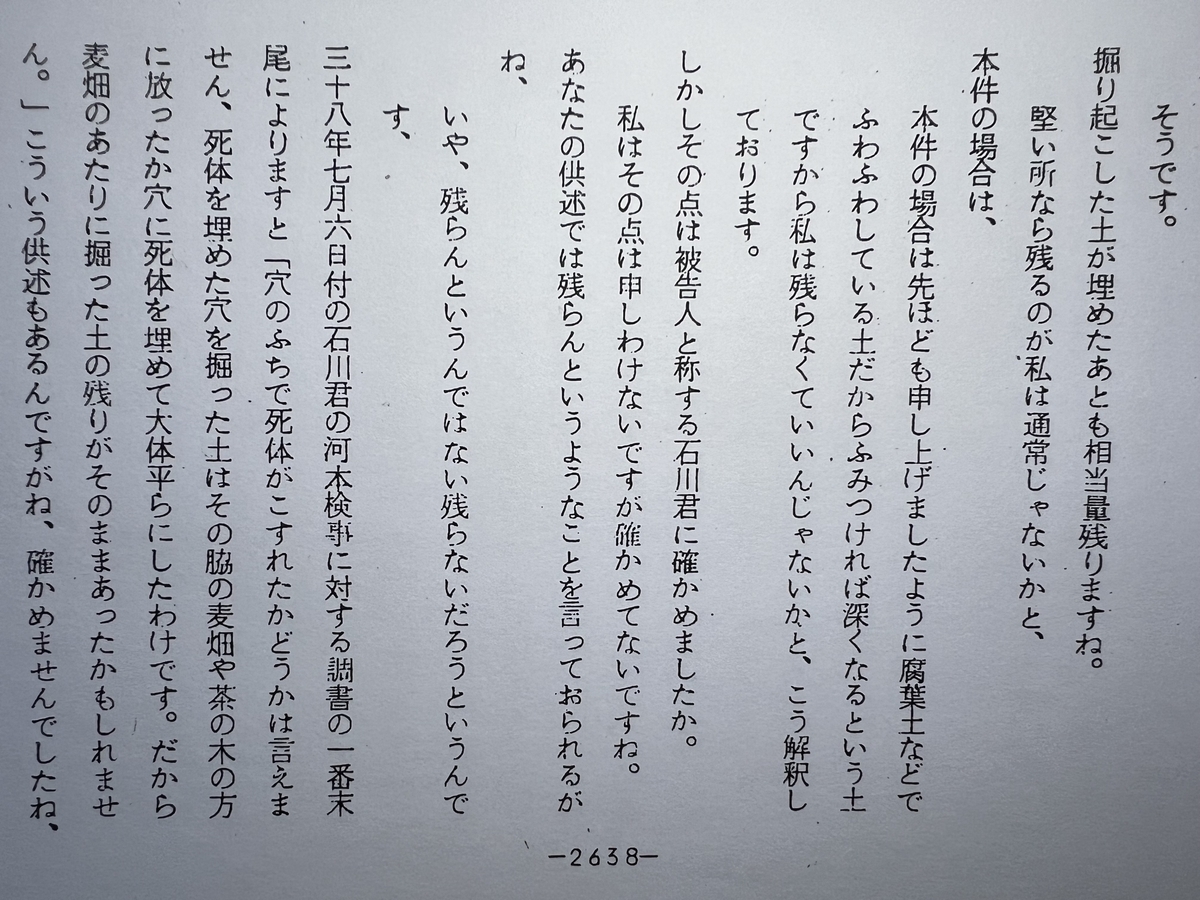 そうです。
掘り起こした土が埋めたあとも相当量残りますね。
堅い所なら残るのが私は通常じゃないかと、
本件の場合は、
本件の場合は先ほども申し上げましたように腐葉土などで
ふわふわしている土だからふみつければ深くなるという土
ですから私は残らなくていいんじゃないかと、こう解釈し
ております。
しかしその点は被告人と称する石川君に確かめましたか。
私はその点は申しわけないですが確かめてないですね。
あなたの供述では残らんというようなことを言っておられるが
ね、
いや、残らんというんではない残らないだろうというんで
す、
三十八年七月六日付の石川君の河本検事に対する調書の一番末
尾によりますと「穴のふちで死体がこすれたかどうかは言えま
せん、死体を埋めた穴を掘った土はその脇の麦畑や茶の木の方
に放ったか穴に死体を埋めて大体平らにしたわけです。だから
麦畑のあたりに掘った土の残りがそのままあったかもしれませ
ん。」こういう供述もあるんですがね、確かめませんでしたね、
—2638—